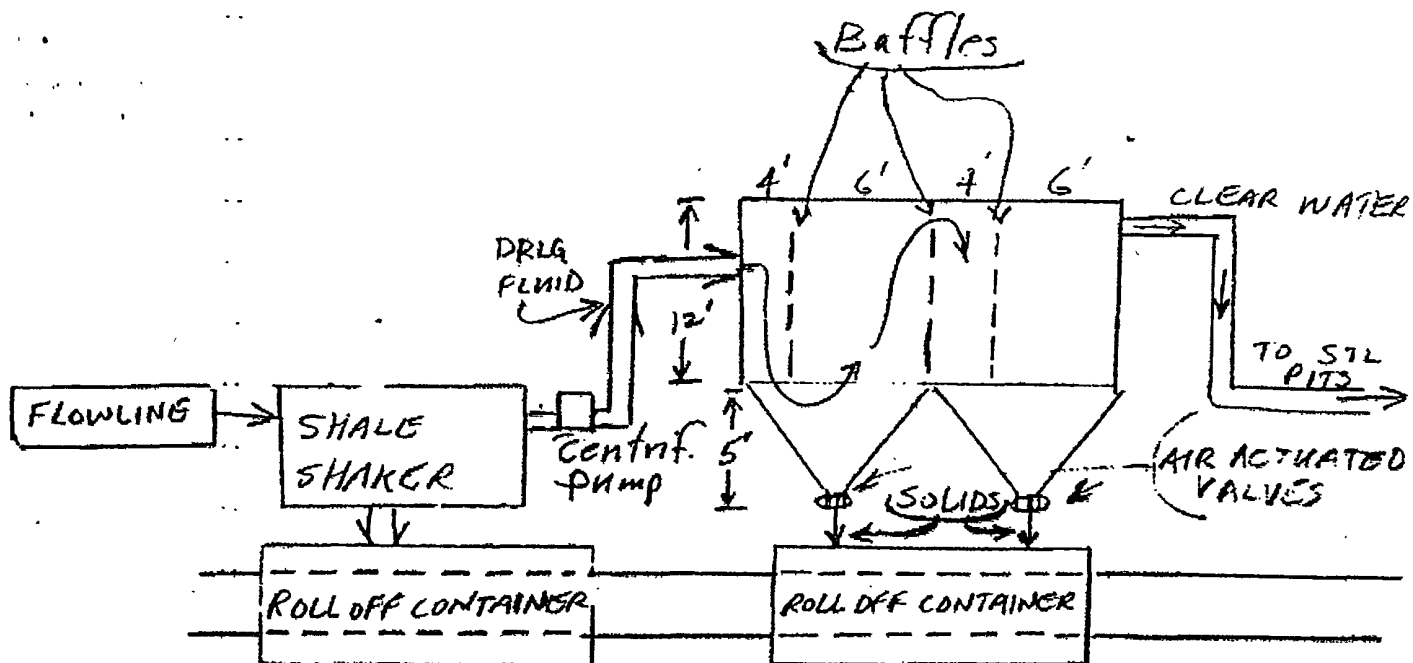 Baffles
4' 6' 4' 6'
CLEAR WATER
DRLG
FLUID
12'
TO STL
PITS
FLOWLINE
SHALE
SHAKER
Centrif.
pump
5'
AIR ACTUATED
VALVES
SOLIDS
ROLL OFF CONTAINER
ROLL OFF CONTAINER